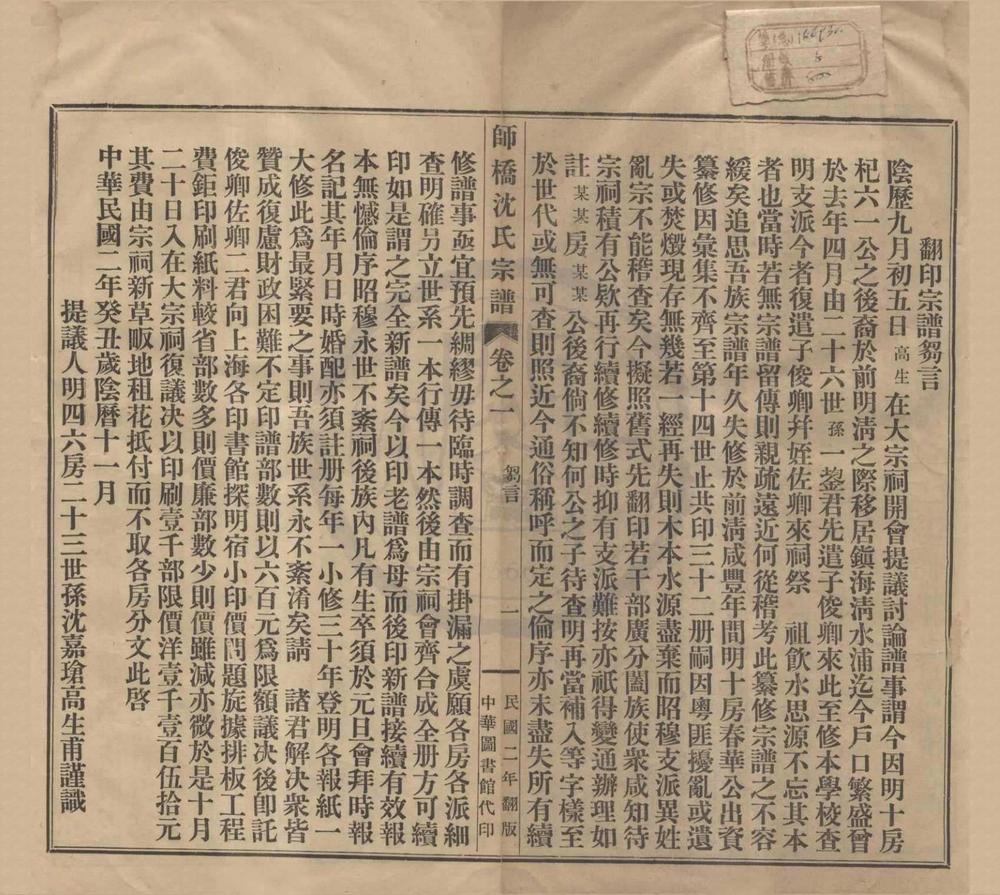 翻印宗譜芻言
陰歷九月初五日高生在大宗祠開會提議討論譜事謂今因明十房
杞六一公之後裔於前明淸之際移居鎭海淸水浦迄今戶口繁盛曾
於去年四月由二十六世孫一鋆君先遣子俊卿來此至修本學校查
明支派今者復遣子俊卿幷姪佐卿來祠祭 祖飲水思源不忘其本
者也當時若無宗譜留傳則親疏遠近何從稽考此纂修宗譜之不容
緩矣追思吾族宗譜年久失修於前淸咸豐年間明十房春華公出資
纂修因彙集不齊至第十四世止共印三十二册嗣因粵匪擾亂或遺
失或焚燬現存無幾若一經再失則木本水源盡棄而昭穆支派異姓
亂宗不能稽查矣今擬照舊式先翻印若干部廣分闔族使衆咸知待
宗祠積有公欵再行續修續修時抑有支派難按亦祇得變通辦理如
註某某房某某公後裔倘不知何公之子待查明再當補入等字樣至
於世代或無可查則照近今通俗稱呼而定之倫序亦未盡失所有續
師橋沈氏宗譜
卷之一
芻言
一
民國二年翻版
中華圖書館代印
修譜事亟宜預先綢繆毋待臨時調查而有掛漏之虞願各房各派細
查明確另立世系一本行傳一本然後由宗祠會齊合成全册方可續
印如是謂之完全新譜矣今以印老譜爲母而後印新譜接續有效報
本無憾倫序昭穆永世不紊祠後族內凡有生卒須於元旦會拜時報
名記其年月日時婚配亦須註册每年一小修三十年登明各報紙一
大修此爲最緊要之事則吾族世系永不紊淆矣請 諸君解決衆皆
贊成復慮財政困難不定印譜部數則以六百元爲限額議決後卽託
俊卿佐卿二君向上海各印書館探明宿小印價問題旋據排板工程
費鉅印刷紙料較省部數多則價廉部數少則價雖減亦微於是十月
二十日入在大宗祠復議决以印刷壹千部限價洋壹千壹百伍拾元
其費由宗祠新草畈地租花抵付而不取各房分文此啓
中華民國二年癸丑歲陰曆十一月
提議人明四六房二十三世孫沈嘉瑲高生甫謹識